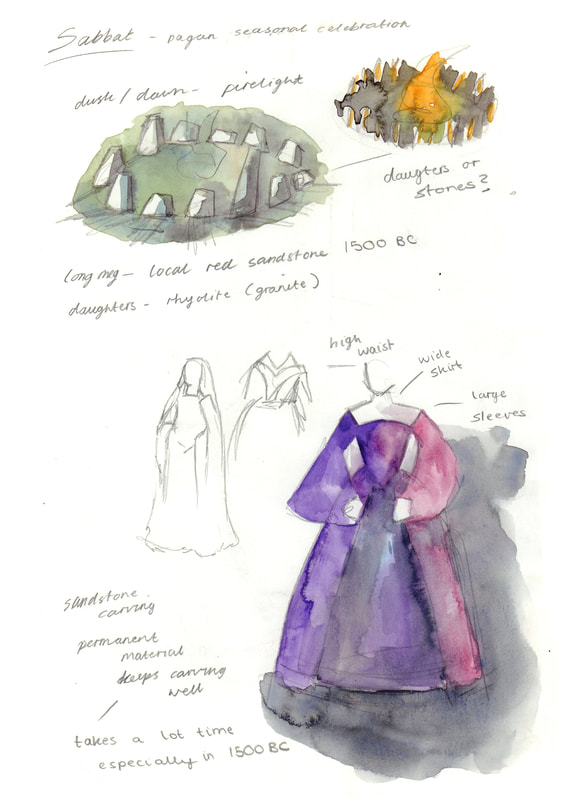 Sabbat - pagan seasonal celebration
dusk / dawn - firelight
daugters or
stones?
long meg - local red sandstone 1500 BC
daughters - rhyolite (granite)
high
waist
wide
shirt
large
sleeves
sandstone
carving
permanent
material
keeps carving
well
takes a lot time
especially in 1500 BC